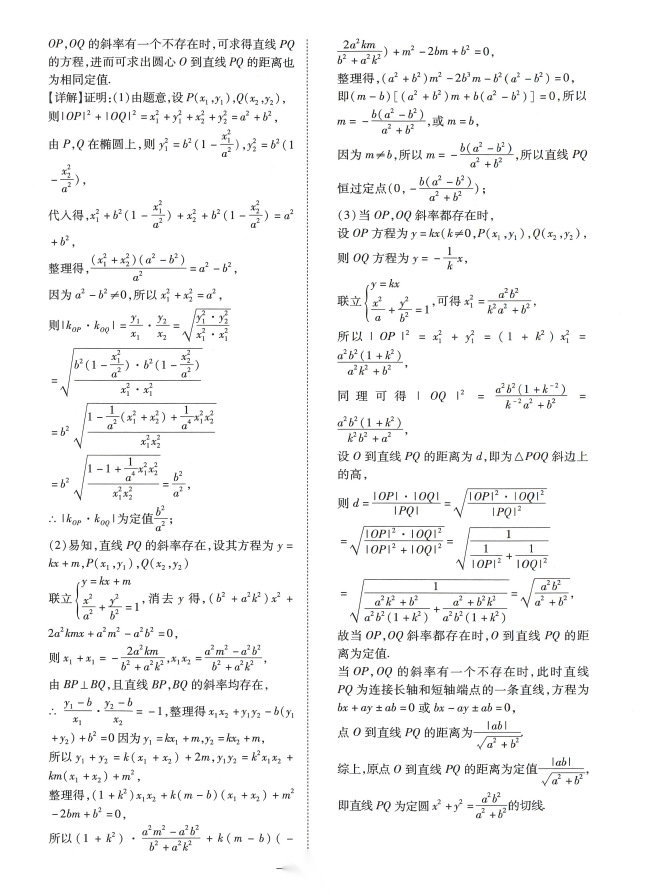 OP,OQ 的斜率有一个不存在时,可求得直线 PQ
的方程,进而可求出圆心 O 到直线 PQ 的距离也
为相同定值.
【详解】证明:(1)由题意,设 P(x₁,y₁),Q(x₂,y₂),
则|OP|² + |OQ|² = x₁² + y₁² + x₂² + y₂² = a² + b²,
由 P,Q 在椭圆上,则 y₁² = b²(1 - x₁²/a²), y₂² = b²(1
- x₂²/a²),
代入得,x₁² + b²(1 - x₁²/a²) + x₂² + b²(1 - x₂²/a²) = a²
+ b²,
整理得,(x₁² + x₂²)(a² - b²)/a² = a² - b²,
因为 a² - b² ≠ 0,所以 x₁² + x₂² = a²,
则|k_OP · k_OQ| = y₁/x₁ · y₂/x₂ = √(y₁² · y₂²/(x₁² · x₁²))
= √(b²(1 - x₁²/a²) · b²(1 - x₂²/a²)/(x₁² · x₁²))
= b²√((1 - 1/a²(x₁² + x₂²) + 1/a⁴ x₁²x₂²)/(x₁²x₂²))
= b²√((1 - 1 + 1/a⁴ x₁²x₂²)/(x₁²x₂²)) = b²/a²,
∴ |k_OP · k_OQ|为定值 b²/a²;
(2)易知,直线 PQ 的斜率存在,设其方程为 y =
kx + m,P(x₁,y₁),Q(x₂,y₂)
联立{y = kx + m, x²/a² + y²/b² = 1,消去 y 得,(b² + a²k²)x² +
2a²kmx + a²m² - a²b² = 0,
则 x₁ + x₁ = - 2a²km/(b² + a²k²), x₁x₂ = (a²m² - a²b²)/(b² + a²k²),
由 BP⊥BQ,且直线 BP,BQ 的斜率均存在,
∴ (y₁ - b)/x₁ · (y₂ - b)/x₂ = -1,整理得 x₁x₂ + y₁y₂ - b(y₁
+ y₂) + b² = 0 因为 y₁ = kx₁ + m,y₂ = kx₂ + m,
所以 y₁ + y₂ = k(x₁ + x₂) + 2m,y₁y₂ = k²x₁x₂ +
km(x₁ + x₂) + m²,
整理得,(1 + k²)x₁x₂ + k(m - b)(x₁ + x₂) + m²
- 2bm + b² = 0,
所以 (1 + k²) · (a²m² - a²b²)/(b² + a²k²) + k(m - b)(-
2a²km/(b² + a²k²)) + m² - 2bm + b² = 0,
整理得,(a² + b²)m² - 2b³m - b²(a² - b²) = 0,
即(m - b)[(a² + b²)m + b(a² - b²)] = 0,所以
m = - b(a² - b²)/(a² + b²),或 m = b,
因为 m≠b,所以 m = - b(a² - b²)/(a² + b²),所以直线 PQ
恒过定点(0, - b(a² - b²)/(a² + b²));
(3)当 OP,OQ 斜率都存在时,
设 OP 方程为 y = kx(k≠0,P(x₁,y₁),Q(x₂,y₂),
则 OQ 方程为 y = - 1/k x,
联立{y = kx, x²/a + y²/b² = 1,可得 x₁² = a²b²/(k²a² + b²),
所以 |OP|² = x₁² + y₁² = (1 + k²)x₁² =
a²b²(1 + k²)/(a²k² + b²),
同理可得 |OQ|² = a²b²(1 + k⁻²)/(k⁻²a² + b²) =
a²b²(1 + k²)/(k²b² + a²),
设 O 到直线 PQ 的距离为 d,即为△POQ 斜边上
的高,
则 d = |OP| · |OQ|/|PQ| = √(|OP|² · |OQ|²/|PQ|²)
= √(|OP|² · |OQ|²/(|OP|² + |OQ|²)) = √(1/(1/|OP|² + 1/|OQ|²))
= √(1/((a²k² + b²)/(a²b²(1 + k²)) + (a² + b²k²)/(a²b²(1 + k²)))) = √(a²b²/(a² + b²)),
故当 OP,OQ 斜率都存在时,O 到直线 PQ 的距
离为定值.
当 OP,OQ 的斜率有一个不存在时,此时直线
PQ 为连接长轴和短轴端点的一条直线,方程为
bx + ay ± ab = 0 或 bx - ay ± ab = 0,
点 O 到直线 PQ 的距离为 |ab|/√(a² + b²)
综上,原点 O 到直线 PQ 的距离为定值 |ab|/√(a² + b²),
即直线 PQ 为定圆 x² + y² = a²b²/(a² + b²)的切线.